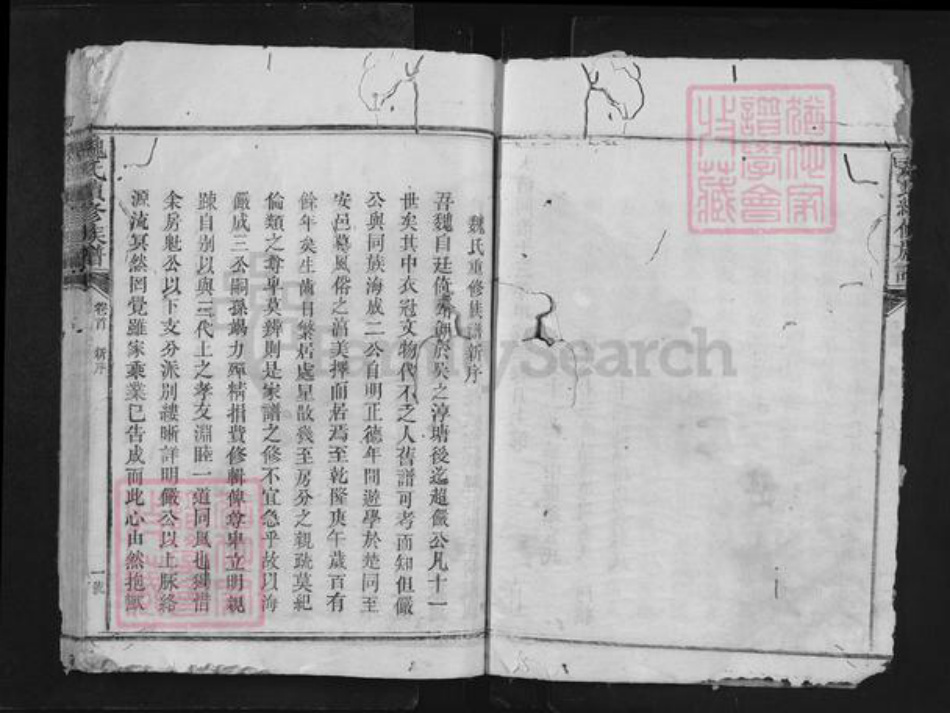 魏氏重修族譜新序
吾魏自廷倚 於 之淳塘後迄超儼公凡十一
世矣其中衣冠文物代不乏人舊譜可考而知但儼
公與同族海威二公自明正德年間遊學於楚同至
安邑慕風俗之淳美擇而居焉至乾隆庚午歲百有
餘年矣生齒日繁居處星散幾至房分之親疏莫紀
倫類之尊卑莫辨則是家譜之修不宜急乎故以海
儼威三公嗣孫竭力殫精捐費修輯俾尊卑立明親
踈自别以與三代上之孝友淵睦一道同風也獨惜
余房魁公以下支分派别縷晰詳明儼公以上脉絡
源流冥然罔覺雖家乘業已告成而此心由然抱歉
魏氏 修族譜
卷首 新序
一號
修族
FamilySearch